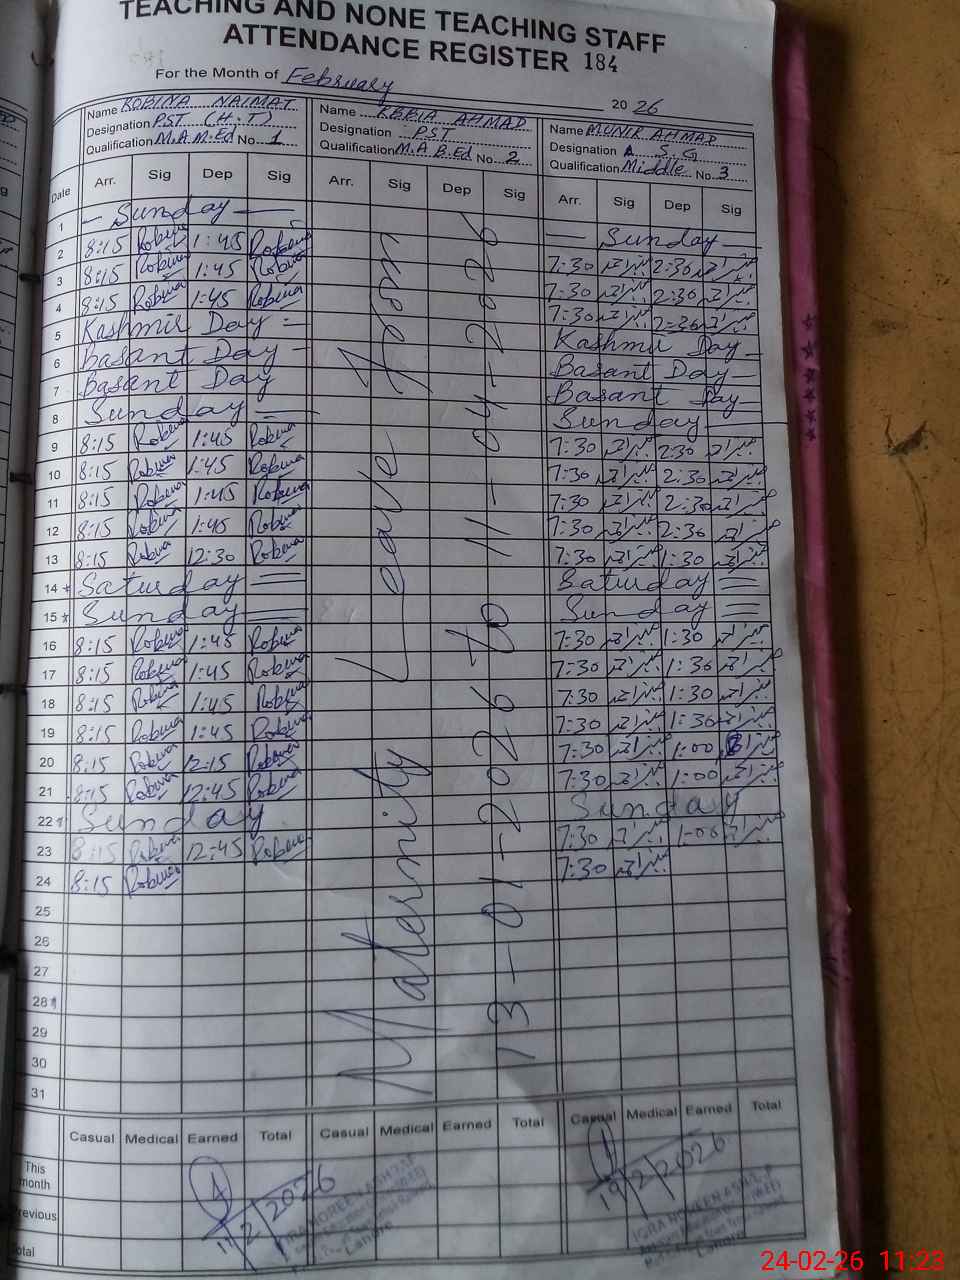 TEACHING AND NONE TEACHING STAFF
ATTENDANCE REGISTER 184
For the Month of February 2026
Name ROBINA NAIMAT
Designation PST (H.T)
Qualification M.A M.Ed No. 1
Name AHMAD
Designation PST
Qualification M.A B.Ed No. 2
Name MUNIR AHMAD
Designation S.G
Qualification Middle No. 3
Date Arr. Sig Dep Sig Arr. Sig Dep Sig Arr. Sig Dep Sig
1 Sunday Sunday
2 8:15 Robina 1:45 Robina 7:30 2:30
3 8:15 Robina 1:45 Robina 7:30 2:30
4 8:15 Robina 1:45 Robina 7:30 2:30
5 Kashmir Day Kashmir Day
6 Basant Day Basant Day
7 Basant Day Basant Day
8 Sunday Sunday
9 8:15 Robina 1:45 Robina 7:30 2:30
10 8:15 Robina 1:45 Robina 7:30 2:30
11 8:15 Robina 1:45 Robina 7:30 2:30
12 8:15 Robina 1:45 Robina 7:30 2:30
13 8:15 Robina 12:30 Robina 7:30 1:30
14 Saturday Saturday
15 Sunday Sunday
16 8:15 Robina 1:45 Robina 7:30 1:30
17 8:15 Robina 1:45 Robina 7:30 1:30
18 8:15 Robina 1:45 Robina 7:30 1:30
19 8:15 Robina 1:45 Robina 7:30 1:30
20 8:15 Robina 12:15 Robina 7:30 1:00
21 8:15 Robina 12:45 Robina 7:30 1:00
22 Sunday Sunday
23 8:15 Robina 12:45 Robina 7:30 1:00
24 8:15 Robina 7:30
25
26
27
28
29
30
31
Maternity Leave from
13-01-2026 To 11-04-2026
Casual Medical Earned Total Casual Medical Earned Total Casual Medical Earned Total
This month
Previous
Total
2/2026
19/2/2026
Lahore
Lahore
24-02-26 11:23